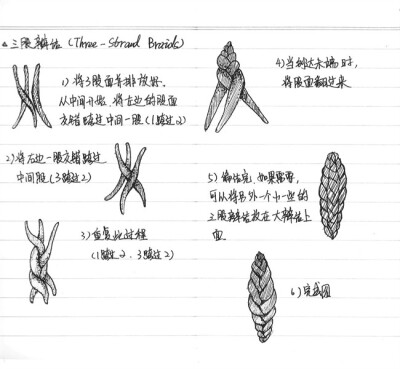 三股辫法 (Three-Strand Braids)
1) 将3股面并排放好.
从中间开始,将右边的股面
交错跨过中间一股(1跨过2)
2) 将左边一股交错跨过
中间股(3跨过2)
3) 重复此过程
(1跨过2、3跨过2)
4) 当到达末端时,
将股面翻过来
5) 编结完,如果需要,
可以将另外一个小一些的
三股辫放在大辫上
面
6) 完成图